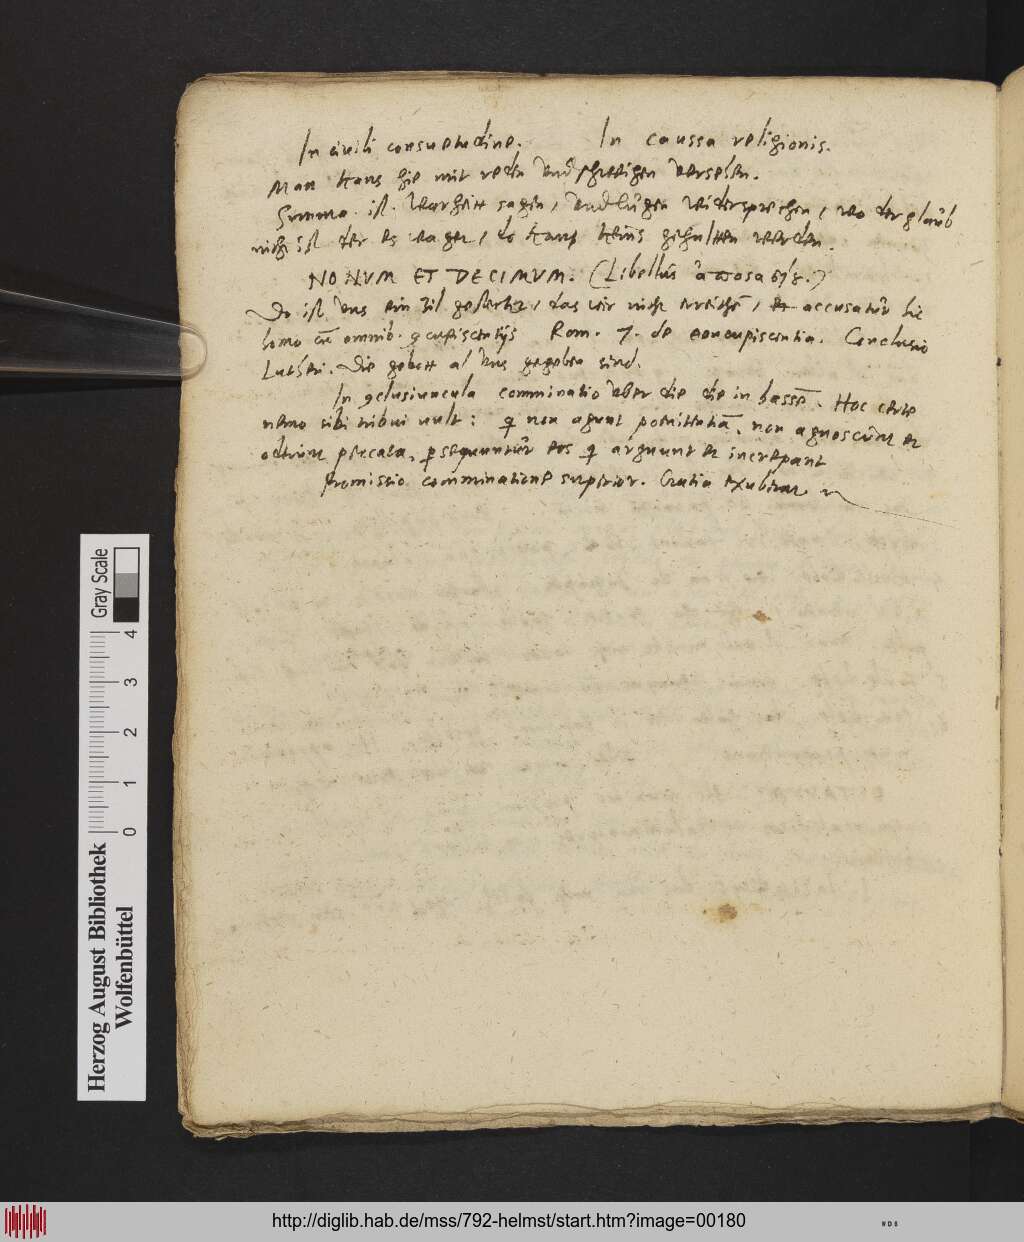 In civili consuetudine. In caussa religionis.
Man kans hie mit reden vnd schweigen versehen.
Summa. ist. Warheit sagen, vnd lügen widersprechen, wo der glaub
nicht ist der es wager, do kans keins gehalten werden.
NONUM ET DECIMUM. (Libellus
Do ist vns ein zil gesteckt, das wir nicht erreichē, et accusatur hic
homo cū omnib. ꝯcupiscentijs Rom. 7. de concupiscentia. Conclusio
Lutheri. Die gebott al vns gegeben sind.
In ꝯclusiuncula comminatio vber die die in bassē. Hoc certe
nemo sibi tribui uult: q non agunt poenitentiā, non agnoscunt et
oderunt peccata, psequuntur eos q arguunt et increpant
Promissio comminatione superior. Gratia exuberat
Herzog August Bibliothek
Wolfenbüttel
0 1 2 3 4
Gray Scale
http://diglib.hab.de/mss/792-helmst/start.htm?image=00180